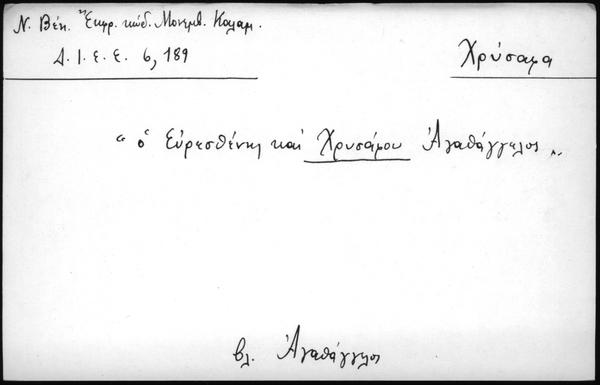 Ν. Βέη. Ἔκφρ. κώδ. Μονεμβ. Καλαμ.
Δ. Ι. Ε. Ε. 6, 189
Χρύσαφα
“ὁ Εὑρεσθένης καὶ Χρυσάφου Ἀγαθάγγελος„
βλ. Ἀγαθάγγελος